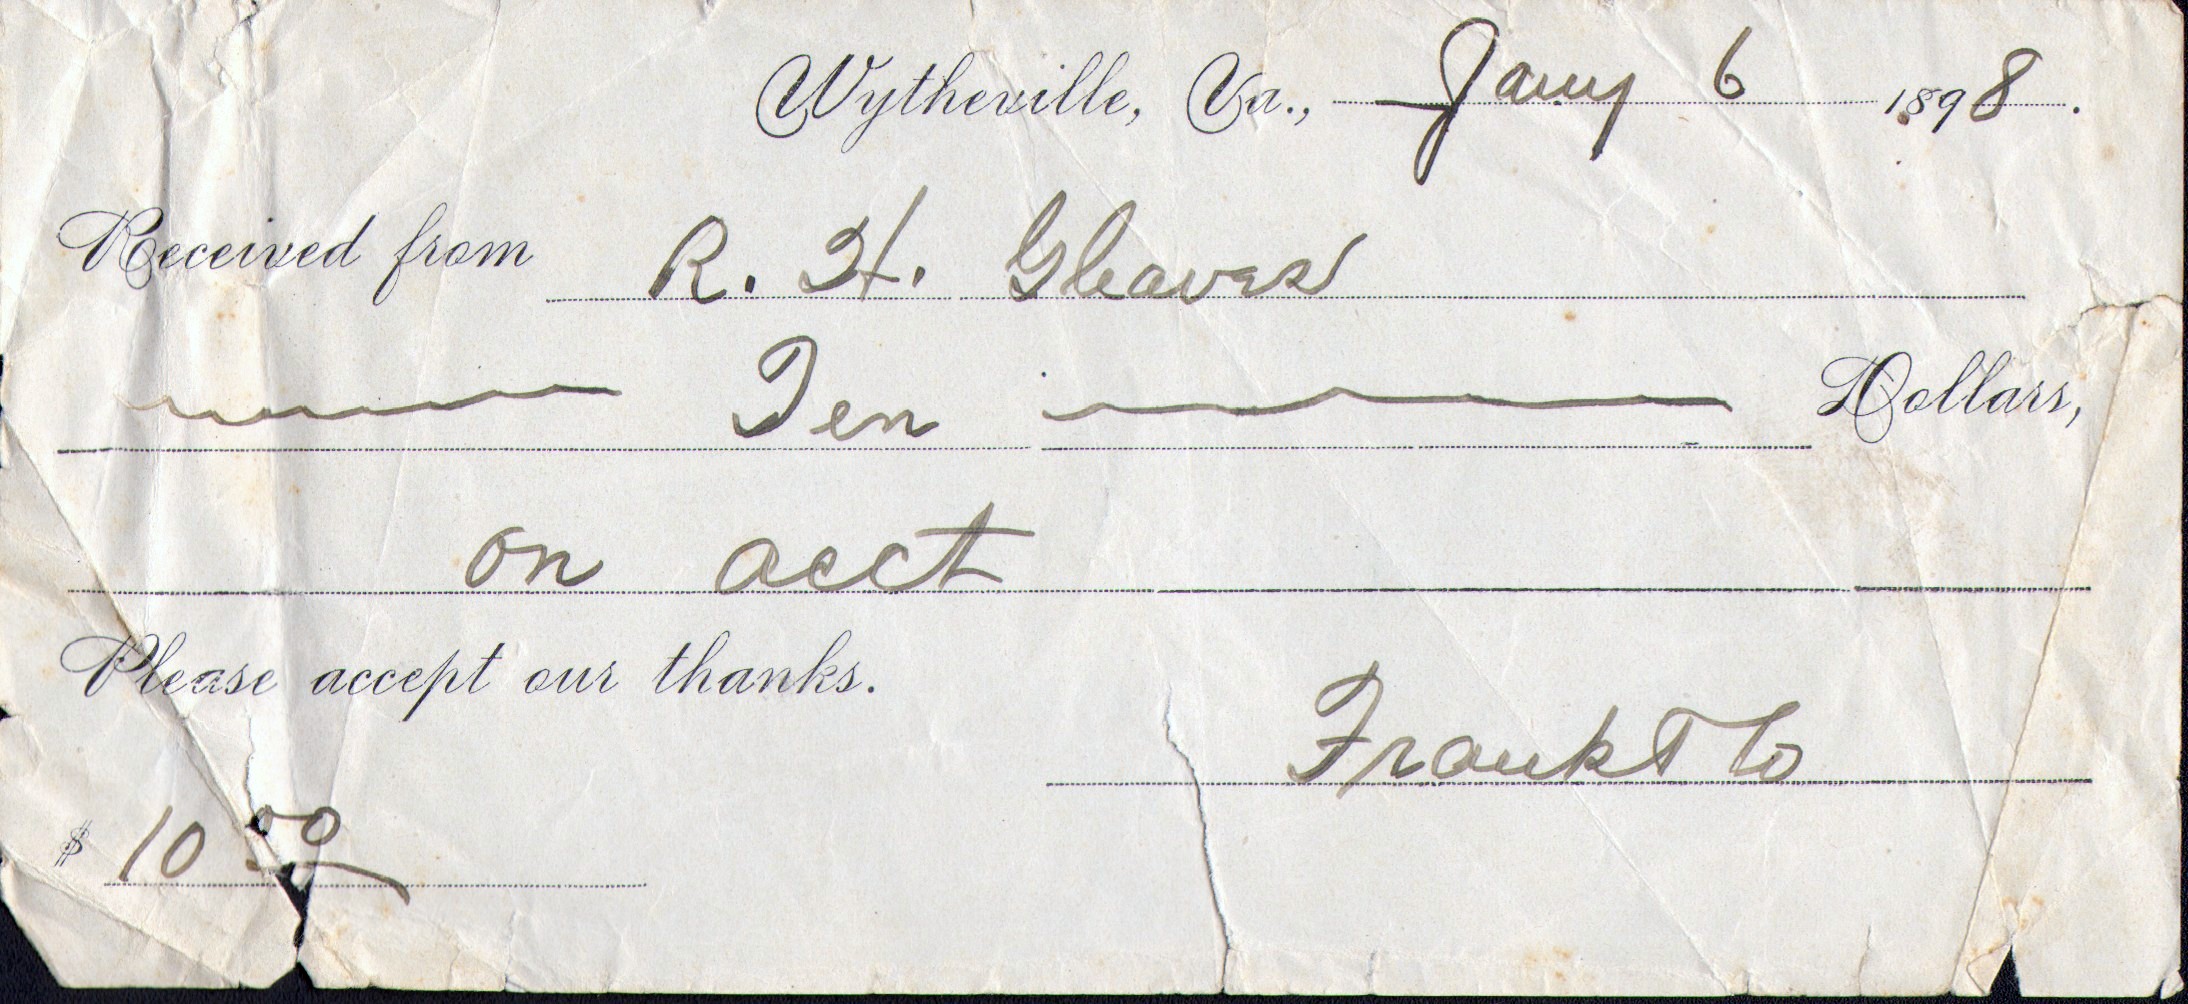 Wytheville, Va., Jany 6 1898.
Received from R. H. Gleaves
Ten Dollars,
on acct
Please accept our thanks.
$ 10.00